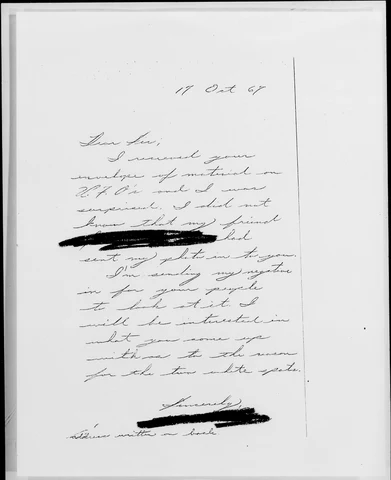 17 Oct 67
Dear Sir,
I received your
envelope of material on
U.F.O's and I was
surprised. I did not
know that my friend
had
sent my photo in to you.
I'm sending my negative
in for your people
to look at it I
will be interested in
what you come up
with as to the reason
for the two white spots.
Sincerely
address written on back